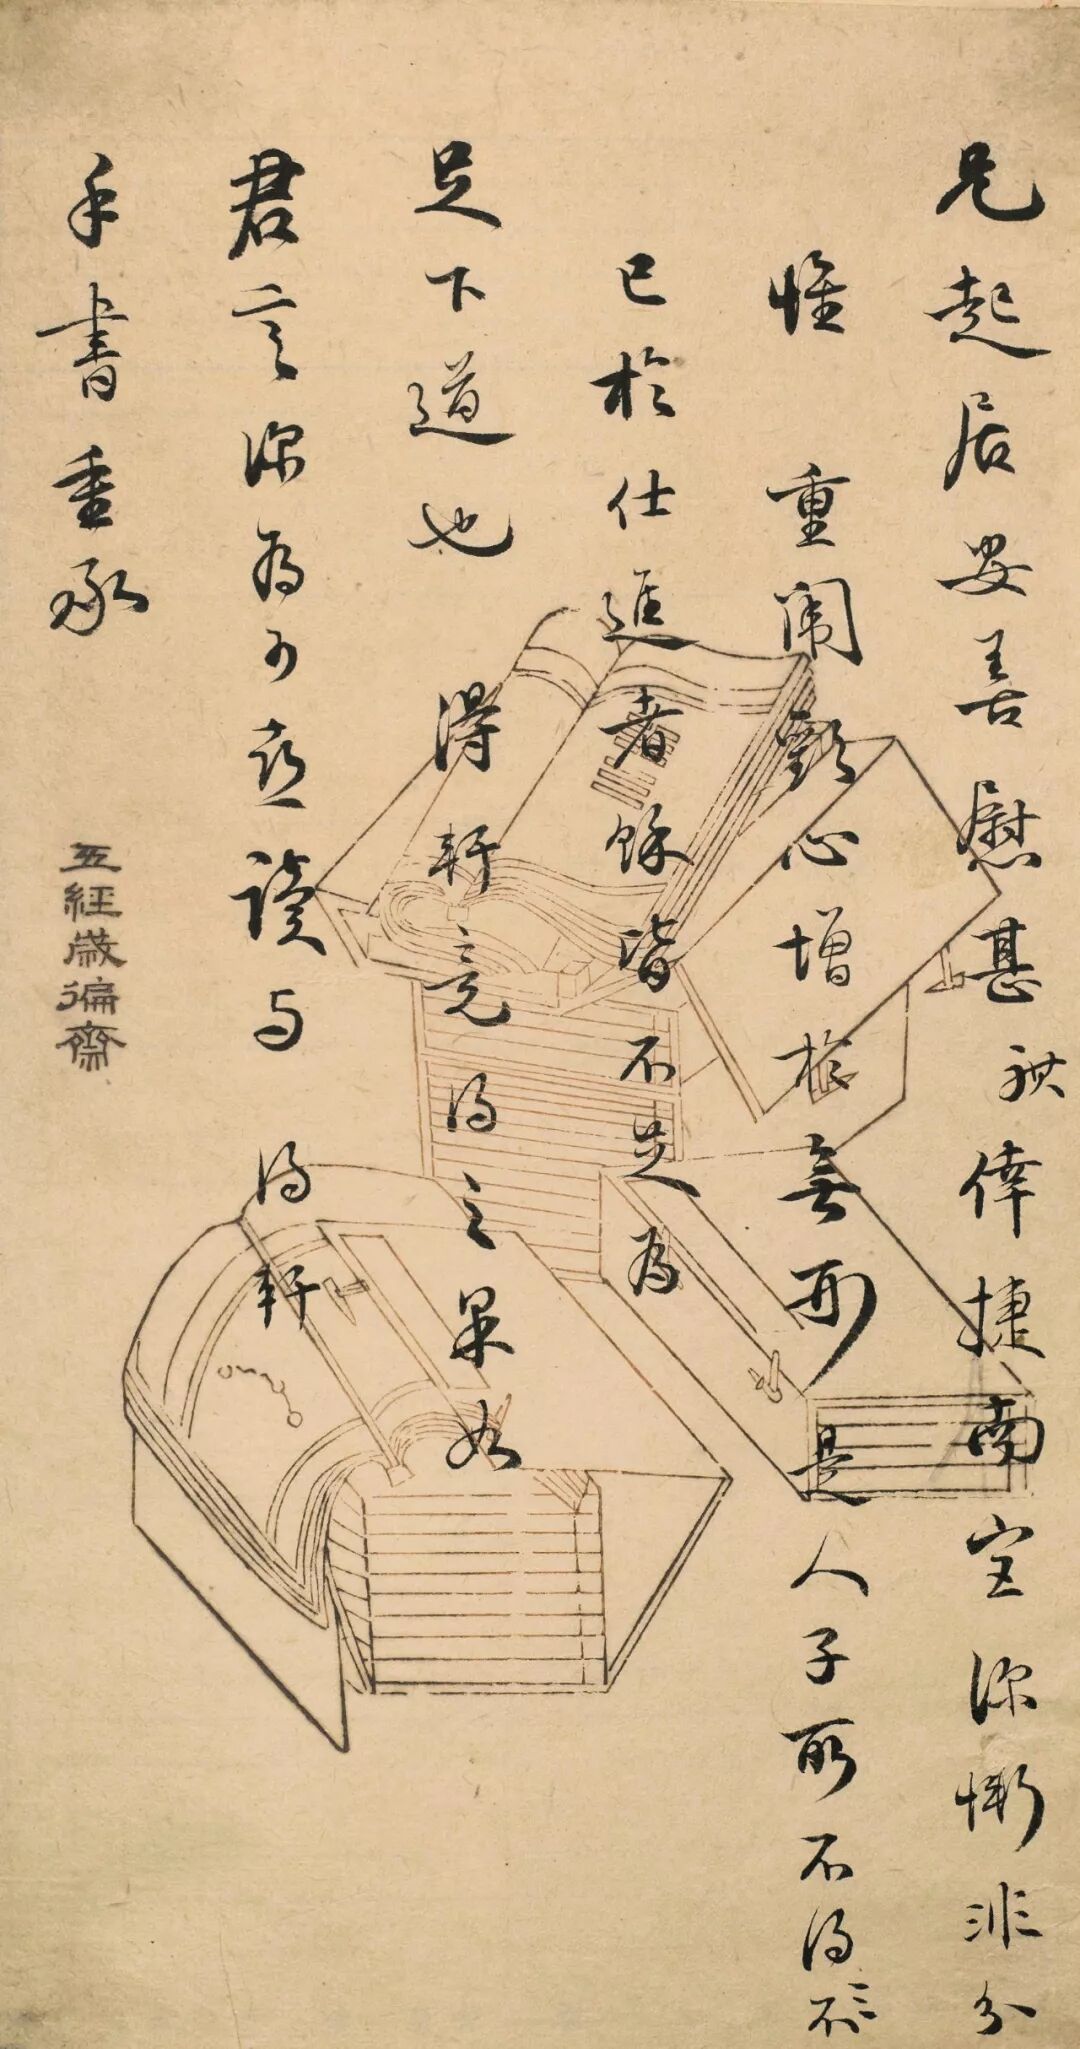 兄起居安善慰甚倖捷南宮深慚非分
惟 重闈歡心增於無形是人子所不得不
已於仕進者餘皆不足為
足下道也 得軒竟得之果如
君言深為可喜讀与 得軒
手書重承
五經歲徧齋